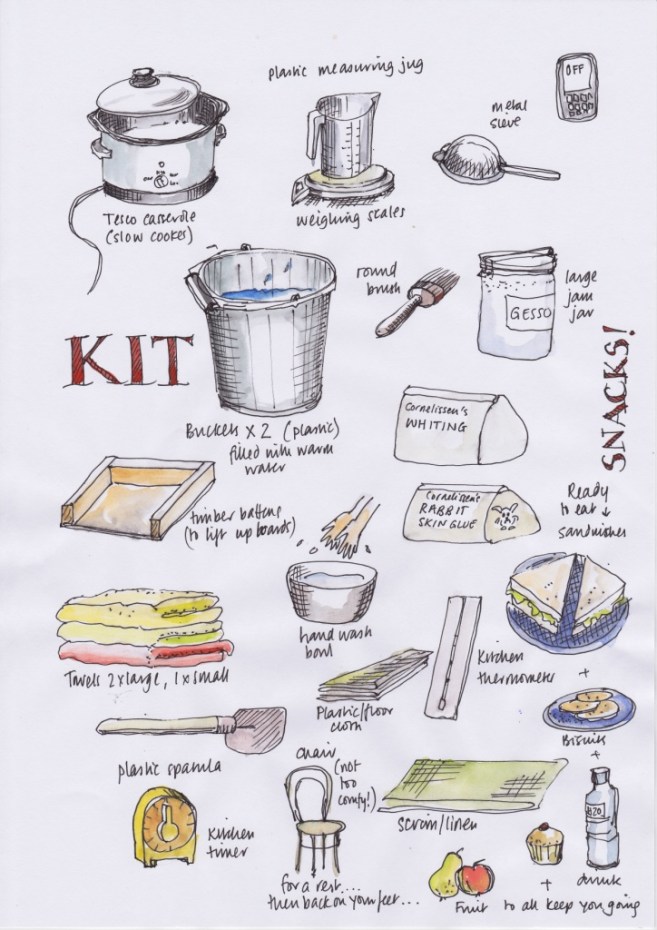 plastic measuring jug
OFF
metal
sieve
Tesco casserole
(slow cooker)
weighing scales
round
brush
GESSO
large
jam
jar
KIT
SNACKS!
Buckets X 2 (plastic)
filled with warm
water
Cornelissen's
WHITING
Cornelissen's
RABBIT
SKIN GLUE
Ready
to eat ↓
sandwiches
timber battens
(to lift up boards)
hand wash
bowl
Towels 2xlarge, 1xsmall
Kitchen
thermometer
+
Plastic/floor
cloth
Biscuits
+
plastic spatula
chair
(not
too
comfy!)
H2O
Kitchen
timer
scrim/linen
for a rest....
then back on your feet...
Fruit
+
drink
to all keep you going